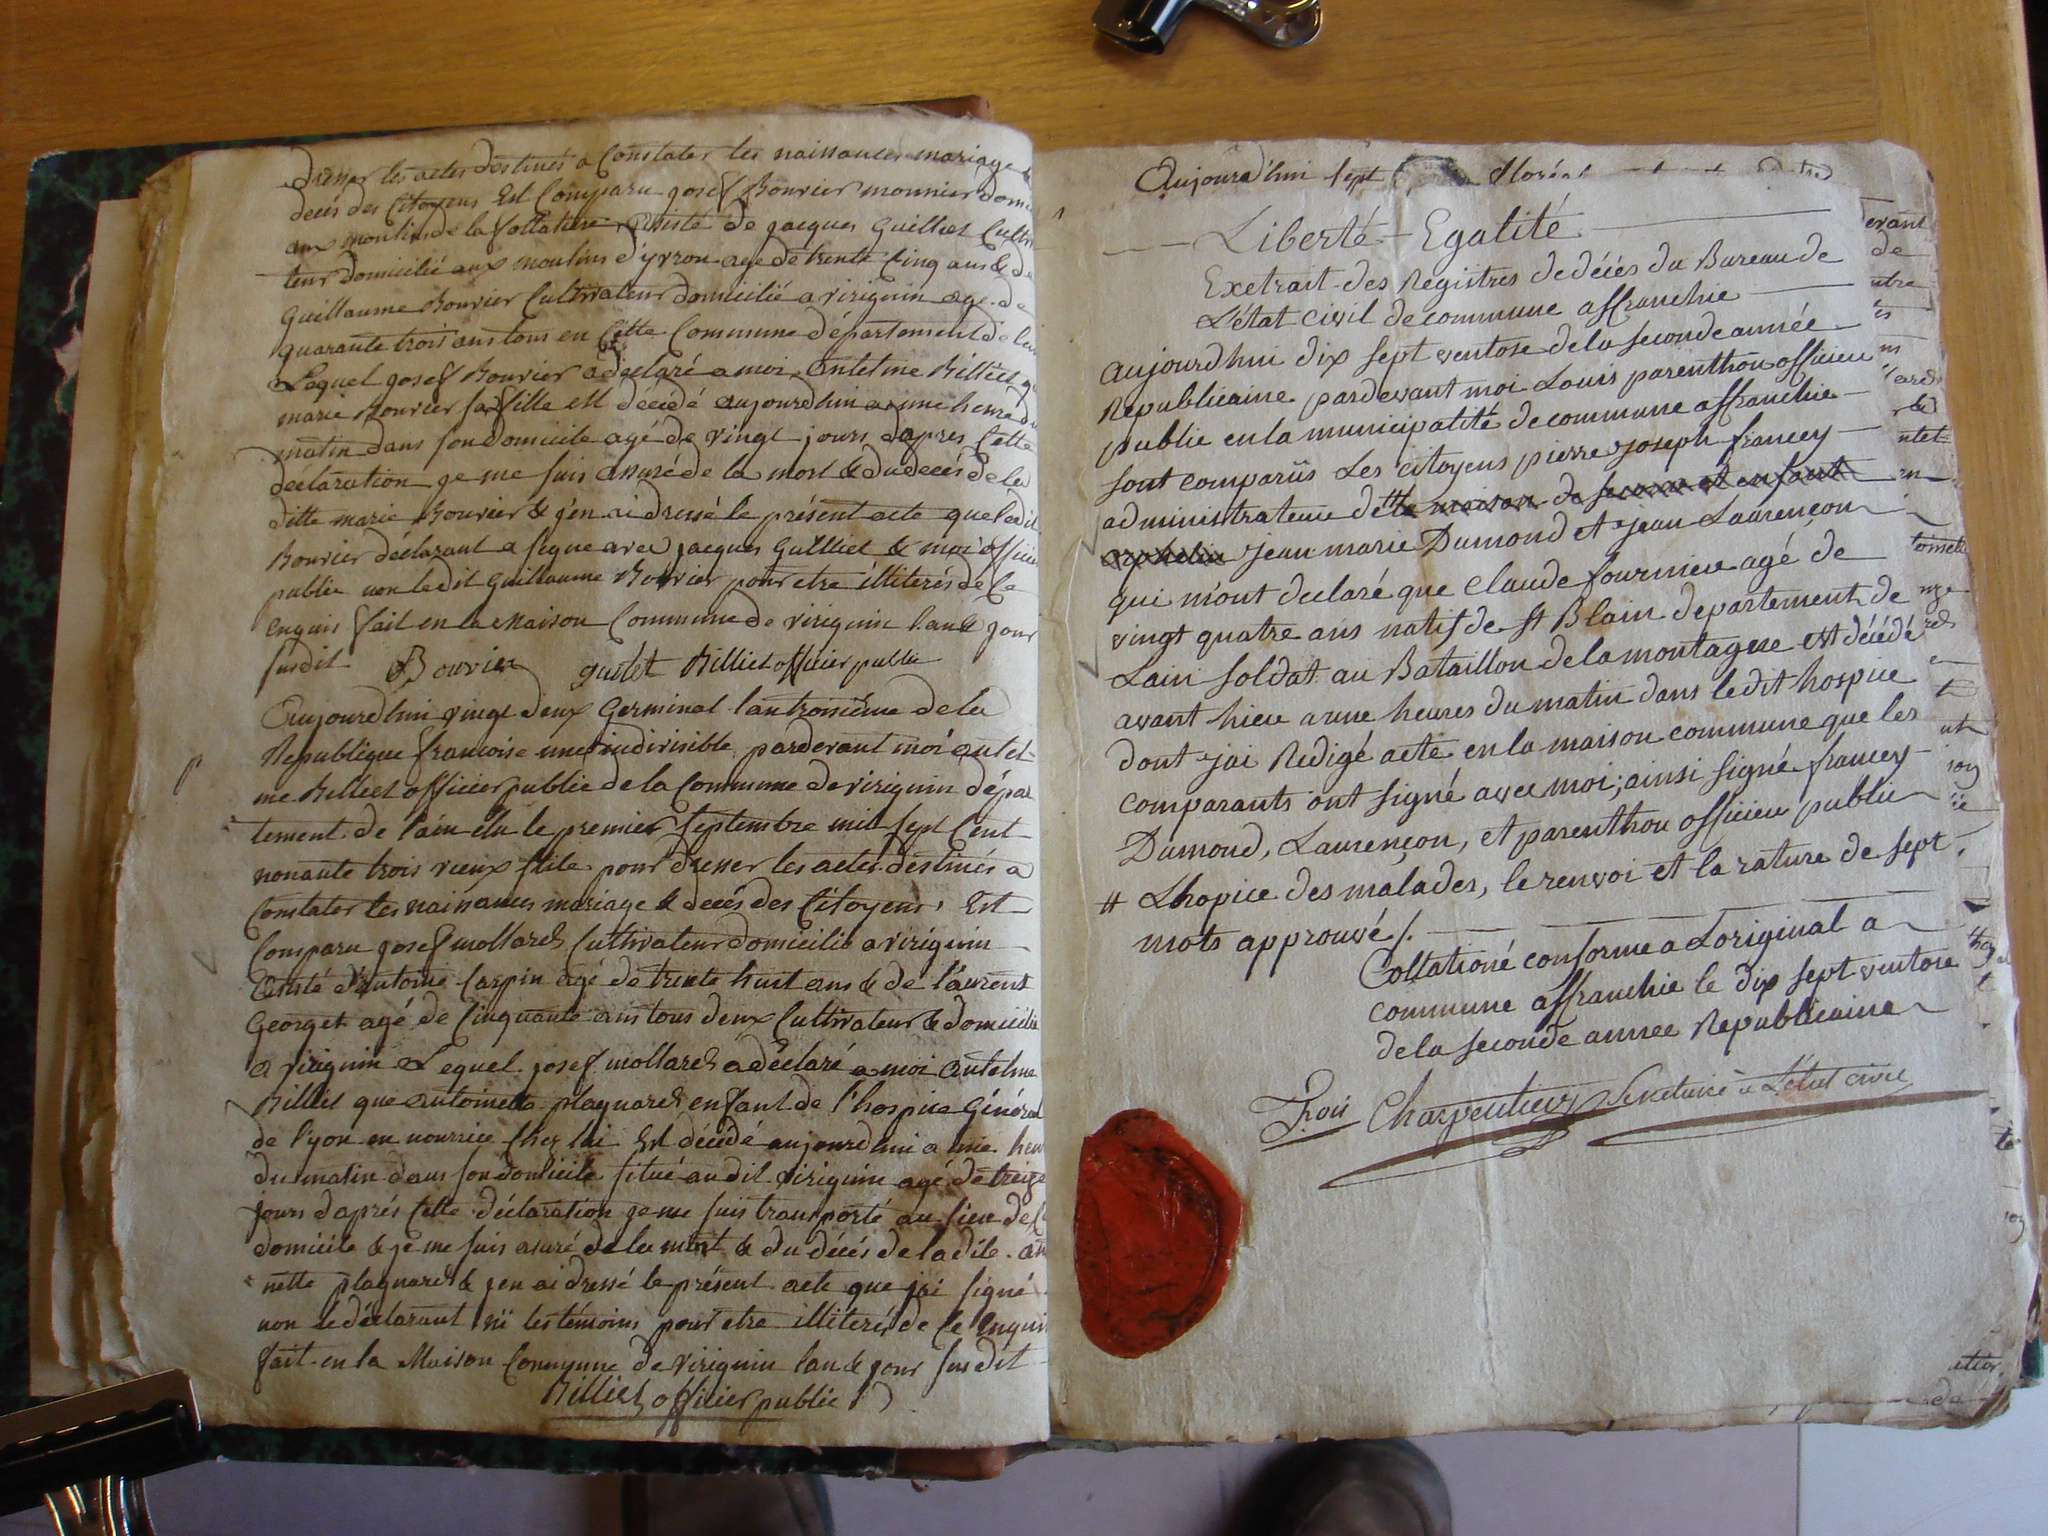 dresser les actes destinés a Constater les naissances mariage &
decés des Citoyens Est Comparu josef Bouvier meunier domi
aux moulins de la Sottatiere Assisté de jacques Guilliet Culti
teur domicilié aux moulins d'yvron agé de trente Cinq ans & de
Guillaume Bouvier Cultivateur domicilié a virignin age de
quarante trois ans tous en Cette Commune département de l'ain
Lequel josef Bouvier a declaré a moi Antelme Billiet q
marie Bouvier sa fille est décédé aujourdhui a une heure du
matin dans son domicile agé de vingt jours dapres Cette
declaration je me suis assuré de la mort & du decés de la
ditte marie Bouvier & j'en ai dressé le présent acte que ledit
Bouvier déclarant a signe avec jacques Guilliet & moi officie
public non ledit Guillaume Bouvier pour etre illiterés de Ce
enquis fait en la Maison Commune de virignin l'an & jour
susdit Bouvier guiliet Billiet officier public
Aujourdhui vingt deux Germinal l'an troisiême de la
Republique francoise une & indivisible pardevant moi antel
me Billiet officier public de la Commune de virignin dépar
tement de l'ain élu le premier Septembre mil sept Cent
nonante trois vieux stile pour dresser les actes destinés a
Constater les naissances mariage & decés des Citoyens, Est
Comparu josef mollard Cultivateur domicilié a virignin
Assisté d'antoine Carpin agé de trente huit ans & de l'aurent
Georget agé de Cinquante ans tous deux Cultivateur & domicilié
a virignin Lequel josef mollard a déclaré a moi Antelme
Billiet que antoinette plagnard enfant de l'hospice Général
de l'yon en nourrice Chez lui Est décédé aujourdhui a une heu
du matin dans son domicile situé au dit virignin agé de treize
jours d'aprés Cette déclaration je me suis transporté au lieu de
domicile & je me suis assuré de la mort & du décés de la dite
nette plagnard & jen ai dressé le présent acte que jai signé
non le déclarant ni les témoins pour etre illiterés de Ce Enquis
fait en la Maison Commune de virignin l'an & jour susdit
Billiet officier public
Aujourd'hui sept Floréal
Liberté Egalité
Exetrait des Registres de décés du Bureau de
L'état civil de commune affranchie
aujourdhui dix sept ventose de la seconde année
Republicaine pardevant moi Louis parenthou officier
public en la municipalité de commune affranchie
sont comparüs Les citoyens pierre joseph francey
administrateur de # la maison de secours et enfant
orphelin jean marie Dumond et jean Laurençon
qui m'ont declaré que claude fournier agé de
vingt quatre ans natif de St Blain departement de
Lain soldat au Bataillon de la montagne est décédé
avant hier a une heures du matin dans ledit hospice
dont jai Redigé acte en la maison commune que les
comparants ont signé avec moi; ainsi signé francey
Dumond, Laurençon, et parenthou officier public
# Lhopice des malades, le renvoi et la rature de sept
mots approuvé /.
Collationé conforme a Loriginal a
commune affranchie le dix sept ventose
de la seconde annee Republicaine
Frois Charpentier Secretaire a L'état civil